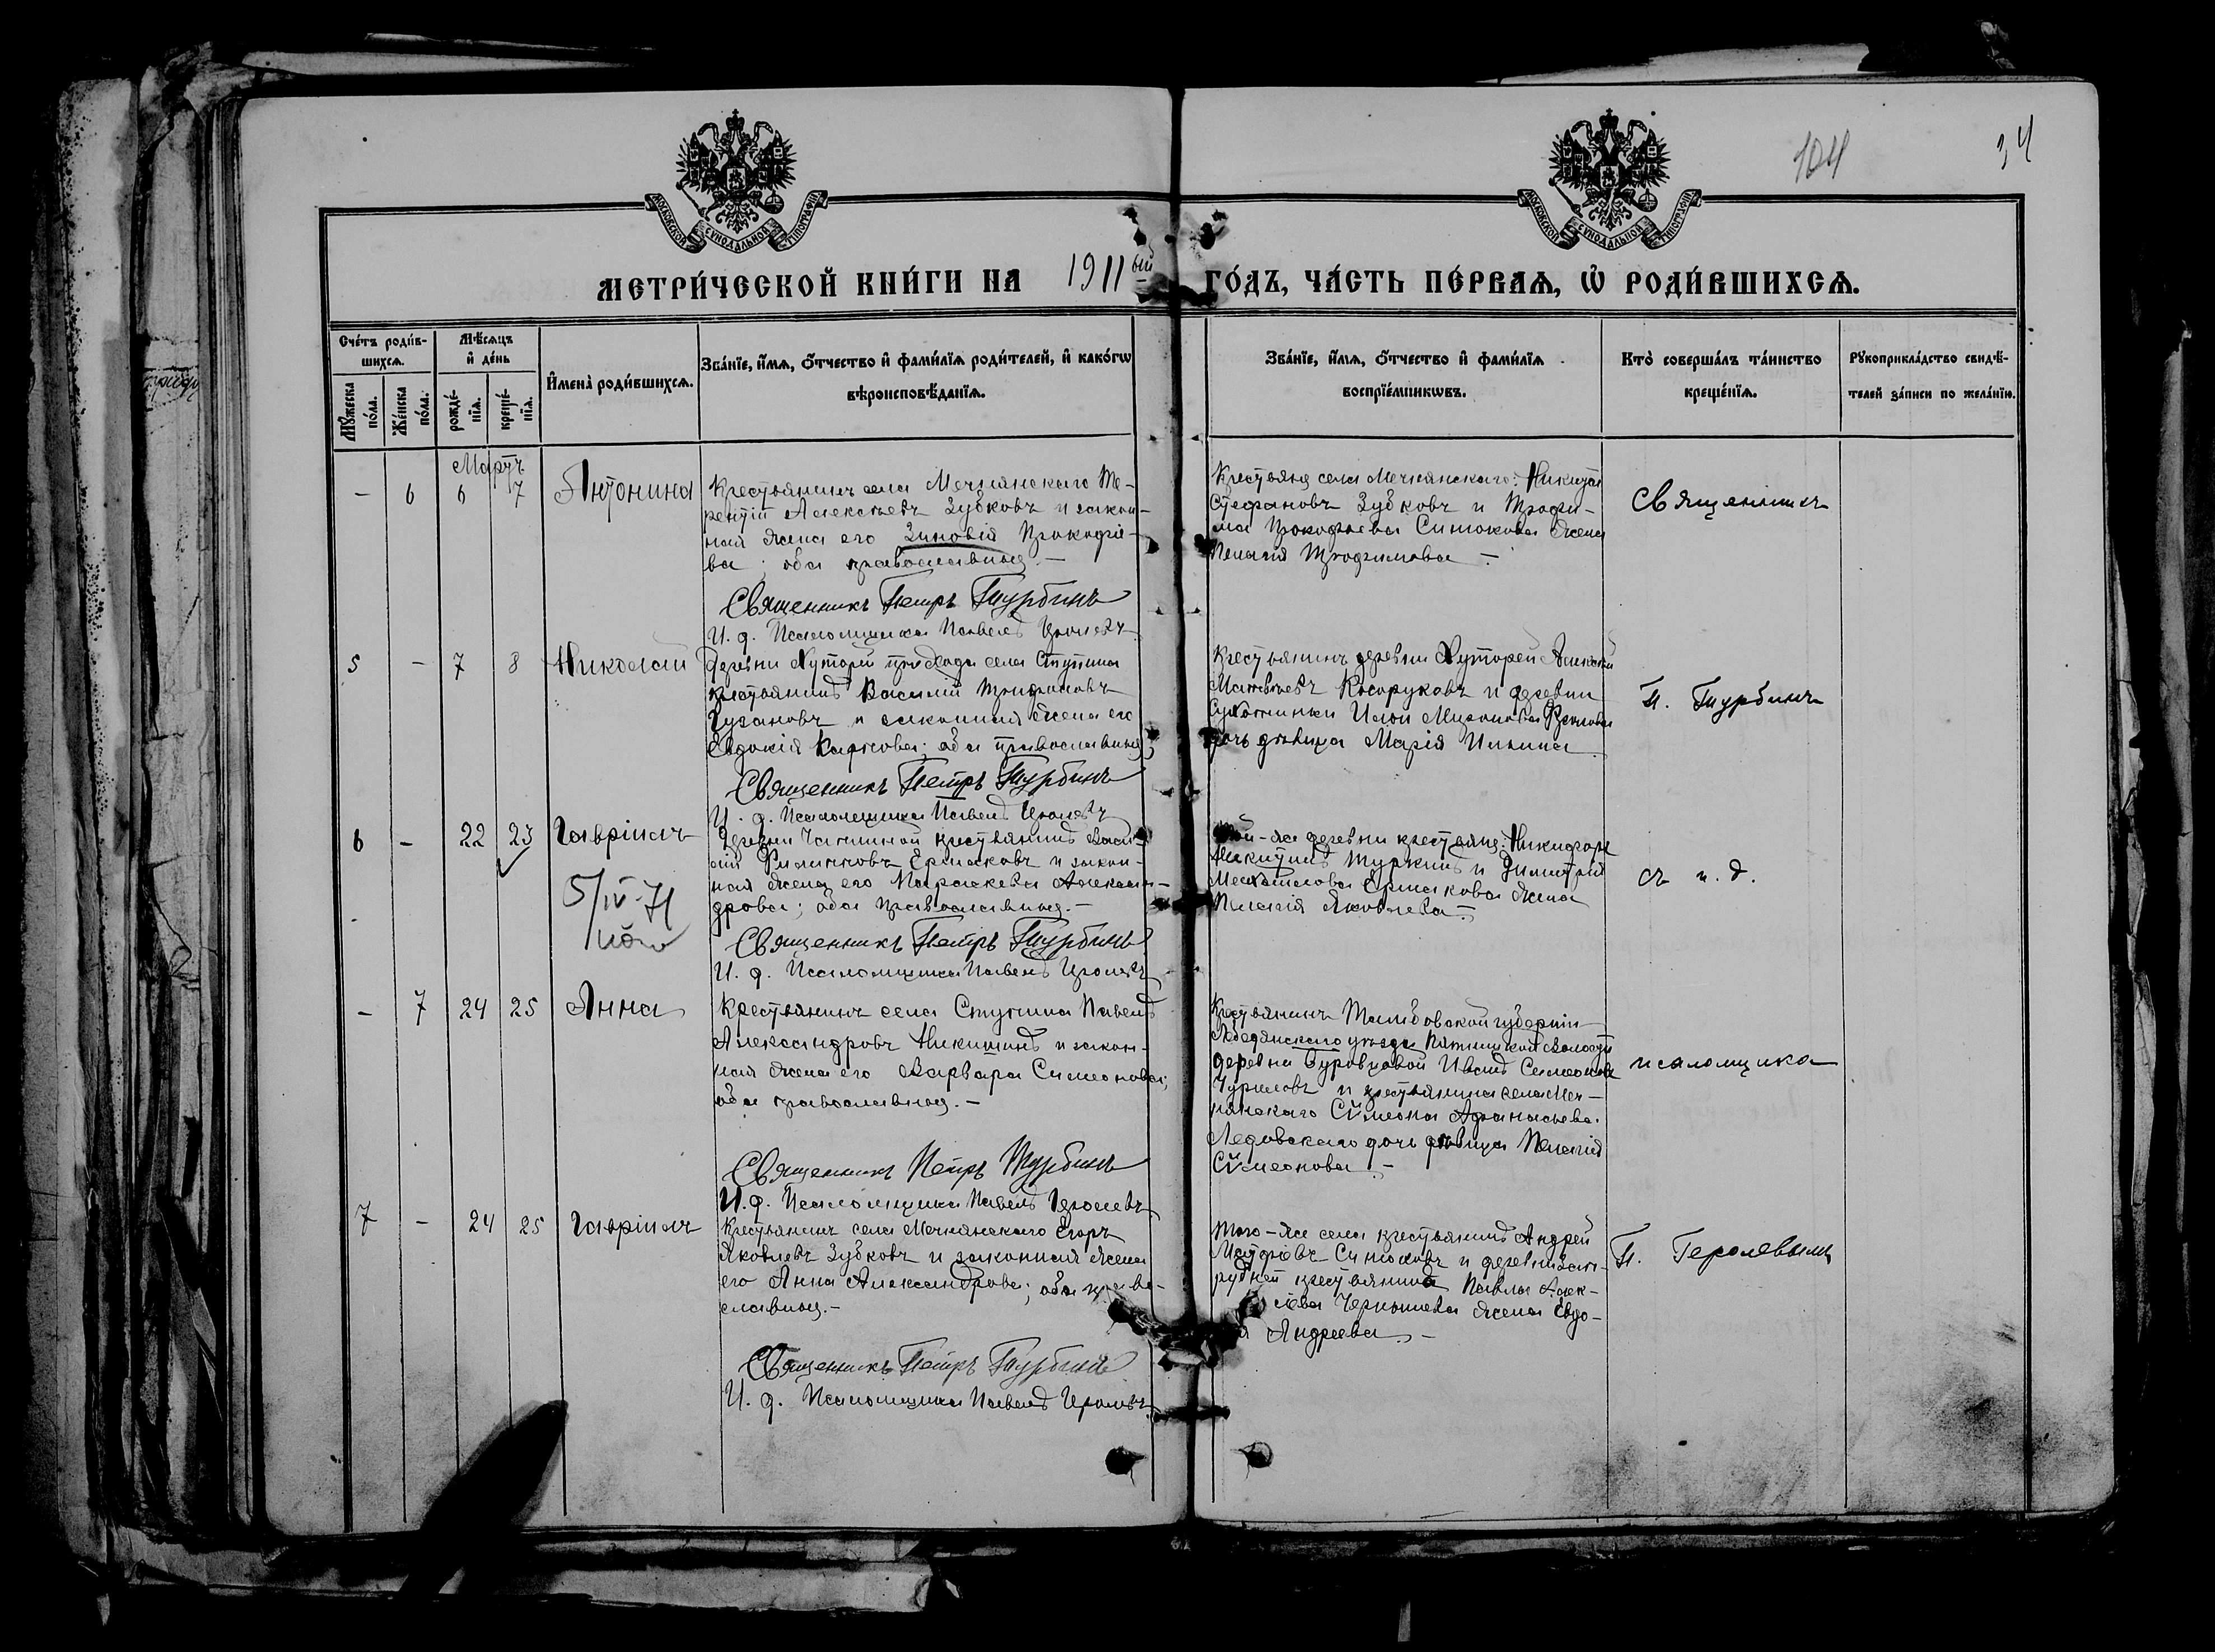 104
34
МОСКОВСКОЙ СУНОДАЛЬНОЙ ТІПОГРАФІИ
МОСКОВСКОЙ СУНОДАЛЬНОЙ ТІПОГРАФІИ
МЕТРИ́ЧЕСКОЙ КНИ́ГИ НА 1911ый ГО́ДЪ, ЧА́СТЬ ПЕ́РВАѦ, Ѡ҆ РОДИ́ВШИХСѦ.
Сче́тъ роди́в-
шихсѧ.
Мꙋжеска
по́ла.
Же́нска
по́ла.
Мѣ́сѧцъ
и҆ де́нь
рожде́-
нїѧ.
креще́-
нїѧ.
И҆мена̀ роди́вшихсѧ.
Зва́нїе, и҆́мѧ, ѻ҆́тчество и҆ фами́лїѧ роди́телей, и҆ како́гѡ
вѣроисповѣ́данїѧ.
Зва́нїе, и҆́мѧ, ѻ҆́тчество и҆ фами́лїѧ
воспрїе́мникѡвъ.
Кто̀ соверша́лъ та́инство
креще́нїѧ.
Рꙋкоприкла́дство свидѣ́-
телей за́писи по жела́нїю.
Мартъ
- 6 6 7 Антонина
Крестьянинъ села Мечнянскаго Те-
рентій Алексѣевъ Зубковъ и закон-
ная жена его Зиновія Прокофіе-
ва; оба православныя.-
Священникъ Петръ Турбинъ
И. д. Псаломщика Павелъ
Крестьяне села Мечнянскаго: Никита
Стефановъ Зубковъ и Трофи-
ма Прокофьева Синюкова жена
Пелагія Трофимова.-
Священникъ
5 - 7 8 Николай
Деревни Хуторей прихода села Ступина
крестьянинъ Василій Трифоновъ
и законная жена его
Евдокія Карпова; оба православныя;
Священникъ Петръ Турбинъ
И. д. Псаломщика Павелъ
Крестьянинъ деревни Хуторей Алексѣй
Матвѣевъ Косоруковъ и деревни
Ильи Миронова
дочь дѣвица Марія Ильина
П. Турбинъ
6 - 22 23 Гавріилъ
5/IV-71
Деревни крестьянинъ Васи-
лій Филипповъ Ермаковъ и закон-
ная жена его Параскева Алексан-
дрова; оба православныя.-
Священникъ Петръ Турбинъ
И. д. Псаломщика Павелъ
Той-же деревни крестьяне: Никифоръ
Никитинъ Туркинъ и Димитрія
Михайлова Ермакова жена
Пелагія Яковлева.-
съ и. д.
- 7 24 25 Анна
Крестьянинъ села Ступина Павелъ
Александровъ Никишинъ и закон-
ная жена его Варвара Симеонова;
оба православныя.-
Священникъ Петръ Турбинъ
И. д. Псаломщика Павелъ
Крестьянинъ Тамбовской губерніи
Лебедянскаго уѣзда волости
деревни Иванъ Симеоновъ
Чуриловъ и крестьянина села Меч-
нянскаго Сѵмеона Афанасьева
Ледовскаго дочь дѣвица Пелагія
Сѵмеонова.-
псаломщика
7 - 24 25 Гавріилъ
Крестьянинъ села Мечнянскаго Егоръ
Яковлевъ Зубковъ и законная жена
его Анна Александрова; оба право-
славныя.-
Священникъ Петръ Турбинъ
И. д. Псаломщика Павелъ
Того-же села крестьянинъ Андрей
Синюковъ и деревни
крестьянина Павла Алек-
Чернышева жена Евдо-
Андреева.-
П. Геролевымъ